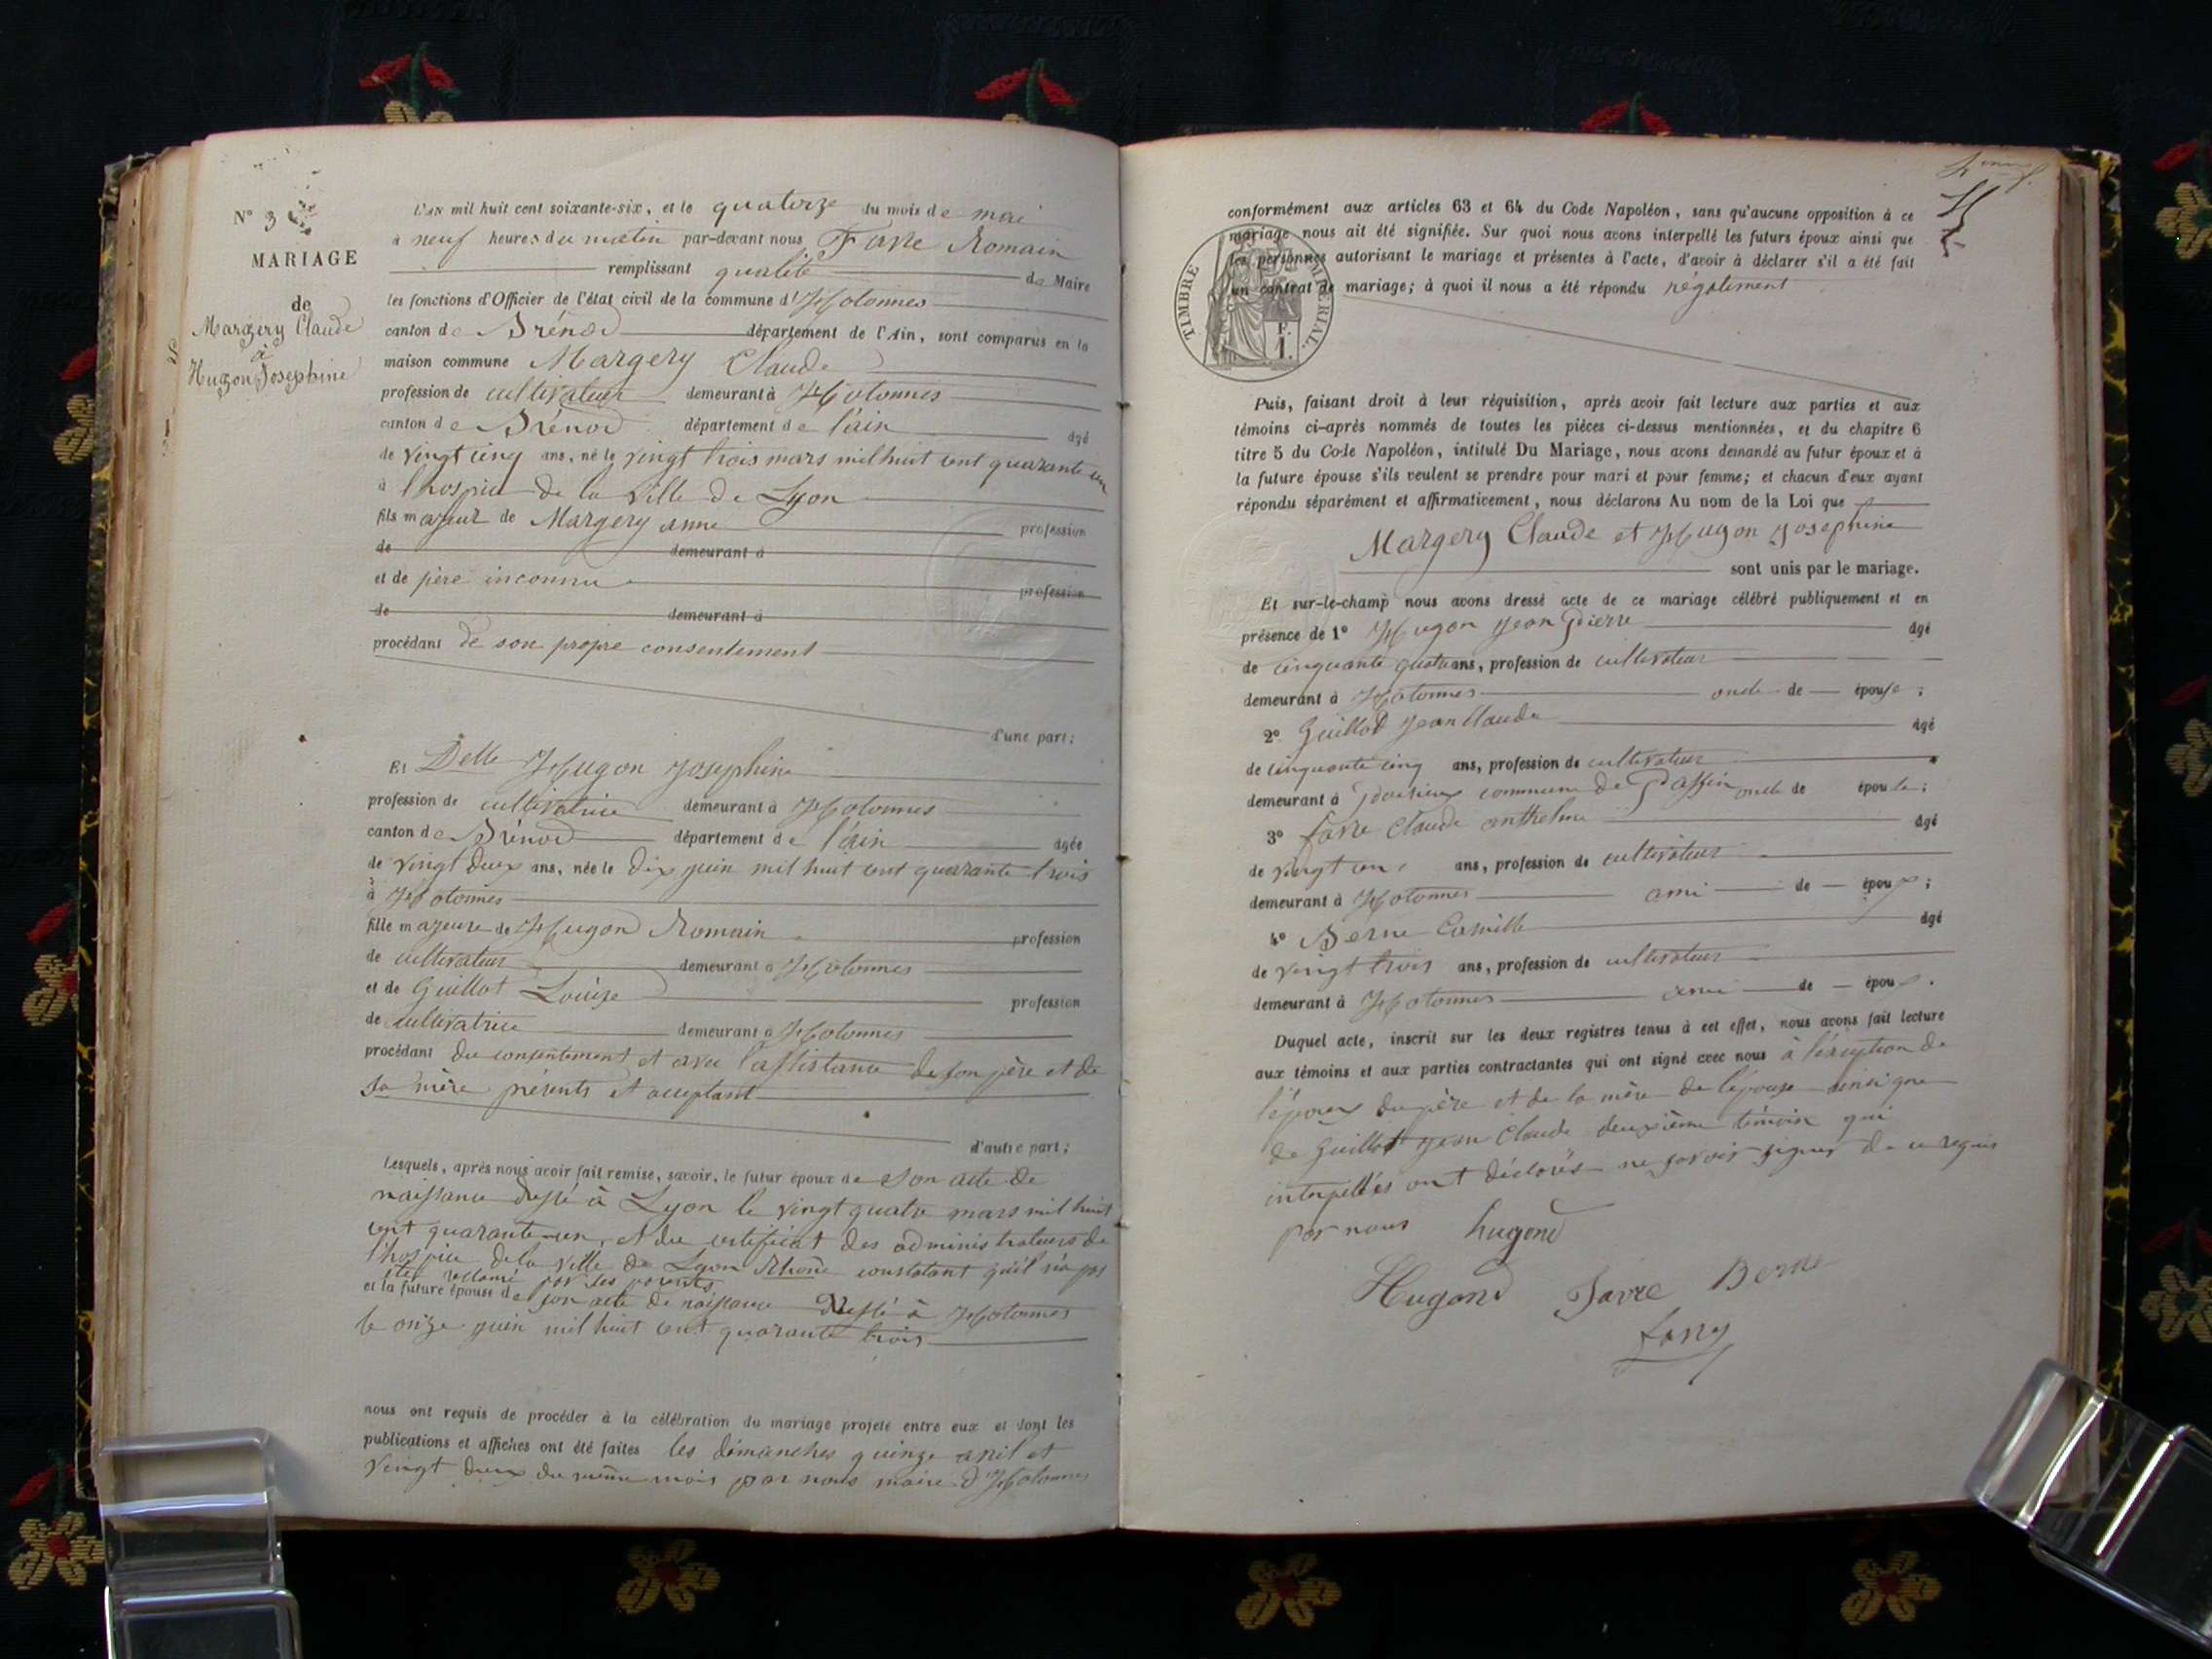 N° 3
MARIAGE
de
Margery Claude
à
Hugon Josephine
L'AN mil huit cent soixante-six, et le quatorze du mois de mai
à neuf heures du matin par-devant nous Favre Romain
remplissant qualité de Maire
les fonctions d'Officier de l'état civil de la commune d'Hotonnes
canton de Brénod département de l'Ain, sont comparus en la
maison commune Margery Claude
profession de cultivateur demeurant à Hotonnes
canton de Brénod département de l'ain âgé
de vingt cinq ans, né le vingt trois mars mil huit cent quarante un
à l'hospice de la Ville de Lyon
fils majeur de Margery anne profession
de demeurant à
et de père inconnu profession
de demeurant à
procédant de son propre consentement
d'une part;
Et Delle Hugon Josephine
profession de cultivatrice demeurant à Hotonnes
canton de Brénod département de l'ain âgée
de vingt deux ans, née le dix juin mil huit cent quarante trois
à Hotonnes
fille majeure de Hugon Romain profession
de cultivateur demeurant à Hotonnes
et de Guillot Louise profession
de cultivatrice demeurant à Hotonnes
procédant du consentement et avec l'assistance de son père et de
sa mère présents et acceptant
d'autre part;
Lesquels, après nous avoir fait remise, savoir, le futur époux de son acte de
naissance dressé à Lyon le vingt quatre mars mil huit
cent quarante-un, et du certificat des administrateurs de
l'hospice de la ville de Lyon Rhône constatant qu'il n'a pas
été réclamé par ses parents
et la future épouse de son acte de naissance dressé à Hotonnes
le onze juin mil huit cent quarante trois
nous ont requis de procéder à la célébration du mariage projeté entre eux et dont les
publications et affiches ont été faites les dimanches quinze avril et
vingt deux du même mois par nous maire d'Hotonnes
conformément aux articles 63 et 64 du Code Napoléon, sans qu'aucune opposition à ce
mariage nous ait été signifiée. Sur quoi nous avons interpellé les futurs époux ainsi que
les personnes autorisant le mariage et présentes à l'acte, d'avoir à déclarer s'il a été fait
un contrat de mariage; à quoi il nous a été répondu négatiment
TIMBRE IMPÉRIAL.
F.
1.
Puis, faisant droit à leur réquisition, après avoir fait lecture aux parties et aux
témoins ci-après nommés de toutes les pièces ci-dessus mentionnées, et du chapitre 6
titre 5 du Code Napoléon, intitulé Du Mariage, nous avons demandé au futur époux et à
la future épouse s'ils veulent se prendre pour mari et pour femme; et chacun d'eux ayant
répondu séparément et affirmativement, nous déclarons Au nom de la Loi que
Margery Claude et Hugon Josephine
sont unis par le mariage.
Et sur-le-champ nous avons dressé acte de ce mariage célébré publiquement et en
présence de 1° Hugon Jean Pierre âgé
de cinquante quatre ans, profession de cultivateur
demeurant à Hotonnes oncle de épouse;
2° Guillot Jean Claude âgé
de cinquante cinq ans, profession de cultivateur
demeurant à commune de Passin oncle de épouse;
3° favre Claude anthelme âgé
de vingt ans, profession de cultivateur
demeurant à Hotonnes ami de époux;
4° Berne Camille âgé
de vingt trois ans, profession de cultivateur
demeurant à Hotonnes ami de époux.
Duquel acte, inscrit sur les deux registres tenus à cet effet, nous avons fait lecture
aux témoins et aux parties contractantes qui ont signé avec nous à l'exception de
l'époux du père et de la mère de l'épouse ainsi que
de Guillot Jean Claude deuxième témoin qui
interpellés ont déclarés ne savoir signer de ce requis
par nous hugond
Hugond Favre Berne